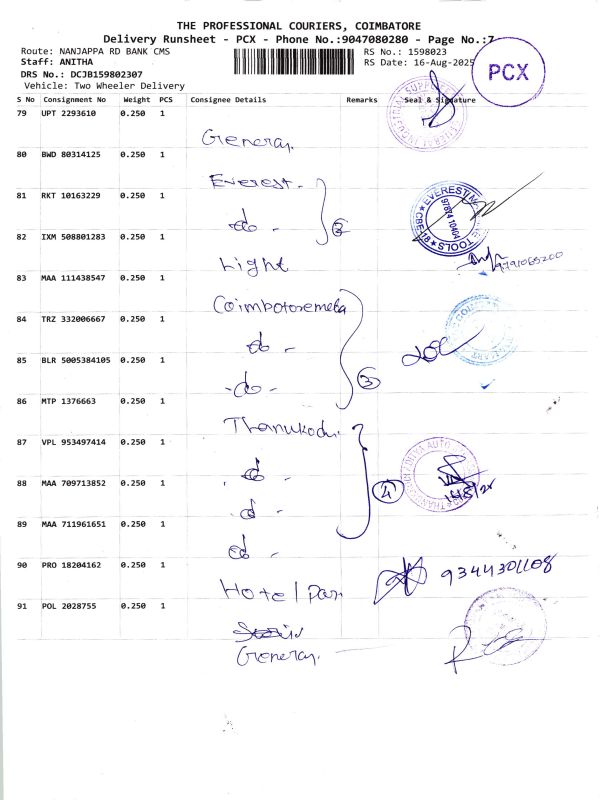 THE PROFESSIONAL COURIERS, COIMBATORE
Delivery Runsheet - PCX - Phone No.:9047080280 - Page No.:7
Route: NANJAPPA RD BANK CMS
RS No.: 1598023
Staff: ANITHA
RS Date: 16-Aug-2025
DRS No.: DCJB159802307
Vehicle: Two Wheeler Delivery
PCX
S No Consignment No Weight PCS Consignee Details Remarks Seal & Signature
79 UPT 2293610 0.250 1
General
80 BWD 80314125 0.250 1
Everest
81 RKT 10163229 0.250 1
do - 2
EVEREST MACHINE TOOLS
CBE-18
97874 10404
82 IXM 508801283 0.250 1
Light
9791065200
83 MAA 111438547 0.250 1
Coimbotoremeta
84 TRZ 332006667 0.250 1
do -
85 BLR 5005384105 0.250 1
- do - 3
86 MTP 1376663 0.250 1
Thanukodi
87 VPL 953497414 0.250 1
do -
88 MAA 709713852 0.250 1
do - 4
89 MAA 711961651 0.250 1
do -
90 PRO 18204162 0.250 1
Hotel Pari
9344301108
91 POL 2028755 0.250 1
General